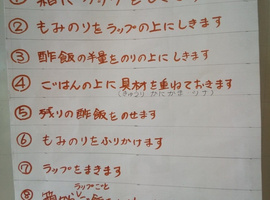 ① 箱に
② もみのりをラップの上にしきます
③ 酢飯の半量をのりの上にしきます
④ ごはんの上に具材を重ねておきます
(きゅうり かにかま ツナ)
⑤ 残りの酢飯をのせます
⑥ もみのりをふりかけます
⑦ ラップをまきます
ラップごと
⑧